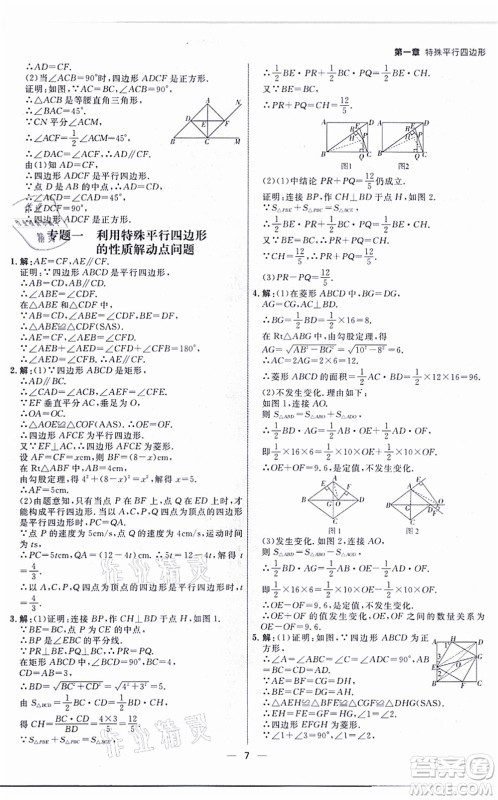 第一章 特殊平行四边形
∴AD=CF.
(2)当∠ACB=90°时,四边形ADCF是正方形.
证明:∵∠ACB=90°,AC=BC,
∴△ACB是等腰直角三角形,
∴∠BAC=45°.
∵CN平分∠ACM,
∴∠ACF=½∠ACM=45°.
∴∠DAC=∠ACF=45°.
∴∠DAC+∠ACF=90°,
∴四边形ADCF是平行四边形.
∵点D是AB的中点,∴CD⊥AB.
∴四边形ADCF是正方形.
专题一 利用特殊平行四边形
的性质解动点问题
1.解:AE=CF,AE∥CF.
证明:∵四边形ABCD是平行四边形,
∴AB=CD,AB∥CD.
∴∠ABE=∠CDF.
在△ABE和△CDF中,
∴△ABE≌△CDF(SAS).
∴AE=CF,∠AEB=∠CFD.
∵∠AEB+∠AED=∠CFD+∠CFE=180°,
∴∠AED=∠CFE.∴AE∥CF.
2.解:(1)∵四边形ABCD是矩形,
∴AD∥BC.
∴∠CAD=∠ACB,∠AEF=∠CFE.
∵EF垂直平分AC,垂足为O,
∴OA=OC.
∴△AOE≌△COF(AAS).∴OE=OF.
∴四边形AFCE为平行四边形.
又∵EF⊥AC,∴四边形AFCE为菱形.
设AF=CF=xcm,则BF=(8-x)cm,
在Rt△ABF中,AB=4cm,
由勾股定理,得4²+(8-x)²=x²,解得x=5.
∴AF=5cm.
(2)由题意知,只有当点P在BF上,点Q在ED上时,才
能构成平行四边形.∴以A,C,P,Q四点为顶点的四边
形是平行四边形时,PC=QA.
∵点P的速度为5cm/s,点Q的速度为4cm/s,运动时间
为ts,
∴PC=5tcm,QA=(12-4t)cm.∴5t=12-4t,解得t
=4/3.
∴以A,C,P,Q四点为顶点的四边形是平行四边形时,t
=4/3.
3.解:(1)证明:连接BP,作CH⊥BD于点H.如图1.
∵BE=BC,PR⊥BE,PQ⊥BC,
∴BP是∠CBE的平分线.
∴PR=PQ.
在矩形ABCD中,∠BCD=90°,BC=AD=4,
CD=AB=3.
∴BD=√(BC²+CD²)=√(4²+3²)=5.
由S△BCD=½BD·CH=½BC·CD,
得CH=BC·CD/BD=4×3/5=12/5.
∵S△PBE+S△PBC=S△BCE,
∴½BE·PR+½BC·PQ=½BE·CH.
又∵BE=BC,
∴PR+PQ=CH=12/5.
图1
图2
(2)(1)中结论PR+PQ=12/5仍成立.
证明:连接BP,过点C作CH⊥BD于点H,如图2.
∵S△PBE+S△PBC=S△BCE,
∴½BE·PR+½BC·PQ=½BE·CH.
又∵BE=BC,
∴PR+PQ=CH=12/5.
(3)PR-PQ=12/5.
4.解:(1)在菱形ABCD中,AG⊥BD,
∴BG=½BD=½×16=8.
在Rt△ABG中,由勾股定理,得
AG=√(AB²-BG²)=√(10²-8²)=6.
∴AC=2AG=2×6=12.
∴菱形ABCD的面积=½AC·BD=½×12×16=96.
(2)不发生变化.理由如下:
如图1,连接AO,
则S△ABD=S△ABO+S△ADO,
∴½BD·AG=½AB·OE+½AD·OF,
即½×16×6=½×10·OE+½×10·OF.
∴OE+OF=9.6,是定值,不发生变化.
图1
图2
(3)发生变化.如图2,连接AO,
则S△ABD=S△ABO-S△ADO,
∴½BD·AG=½AB·OE-½AD·OF.
即½×16×6=½×10·OE-½×10·OF.
∴OE-OF=9.6,是定值,不发生变化.
∴OE+OF的值发生变化,OE,OF之间的数量关系为
OE-OF=9.6.
5.解:(1)证明:如图,
∵四边形ABCD为正方形,
∴∠A=∠B=90°,AB=BC=AD=CD.
∵AE=BF=CG=DH,
∴AH=BE=CF=DG.
∴△AEH≌△BFE≌△CGF≌△DHG(SAS).
∴EH=FE=GF=HG.
∴四边形EFGH为菱形.
∵∠1=∠3,∠1+∠2=90°,
7
作业精灵